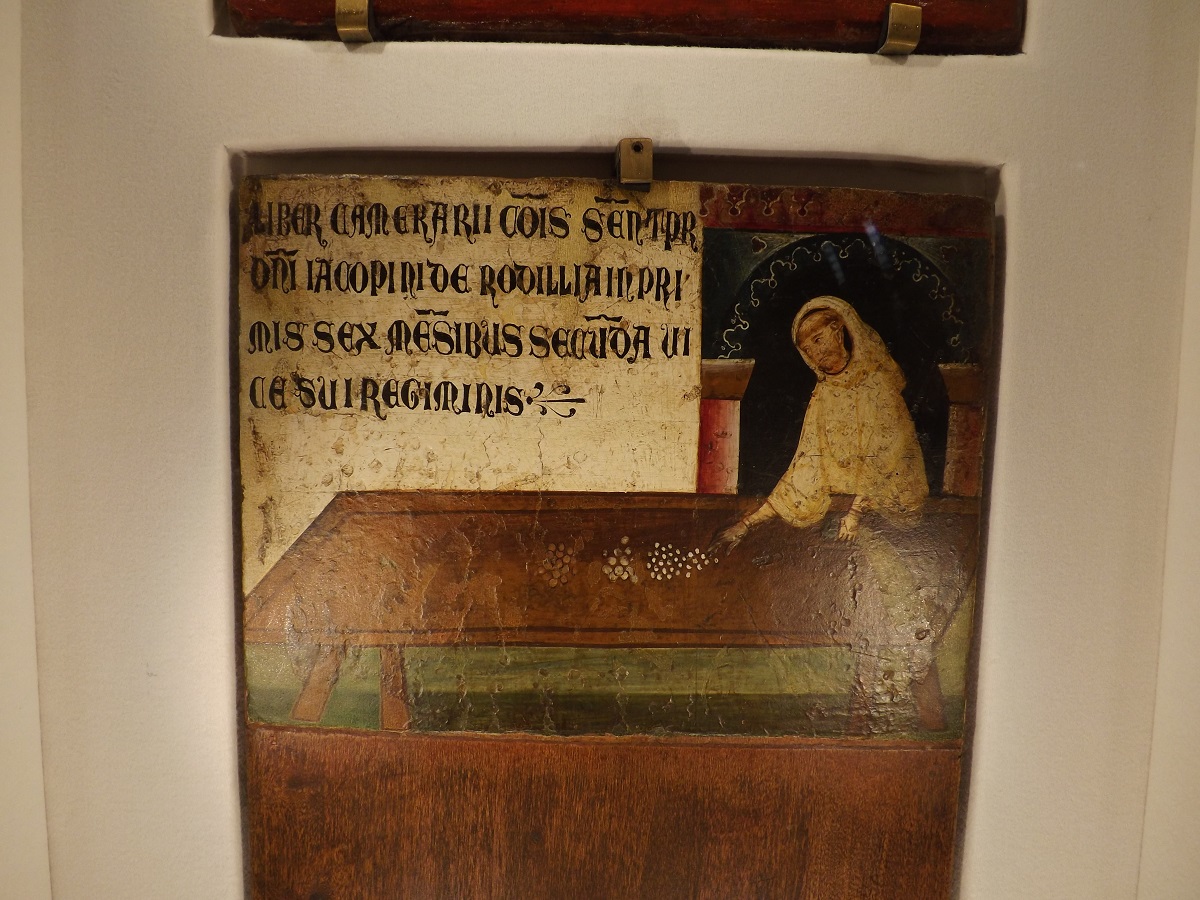 LIBER CAMERARII CO̅IS SE̅N T̅PR
DN̅I IACOPINI DE RODILLIA IN PRI
MIS SEX ME̅SIBUS SECU̅DA UI
CE SUI REGIMINIS